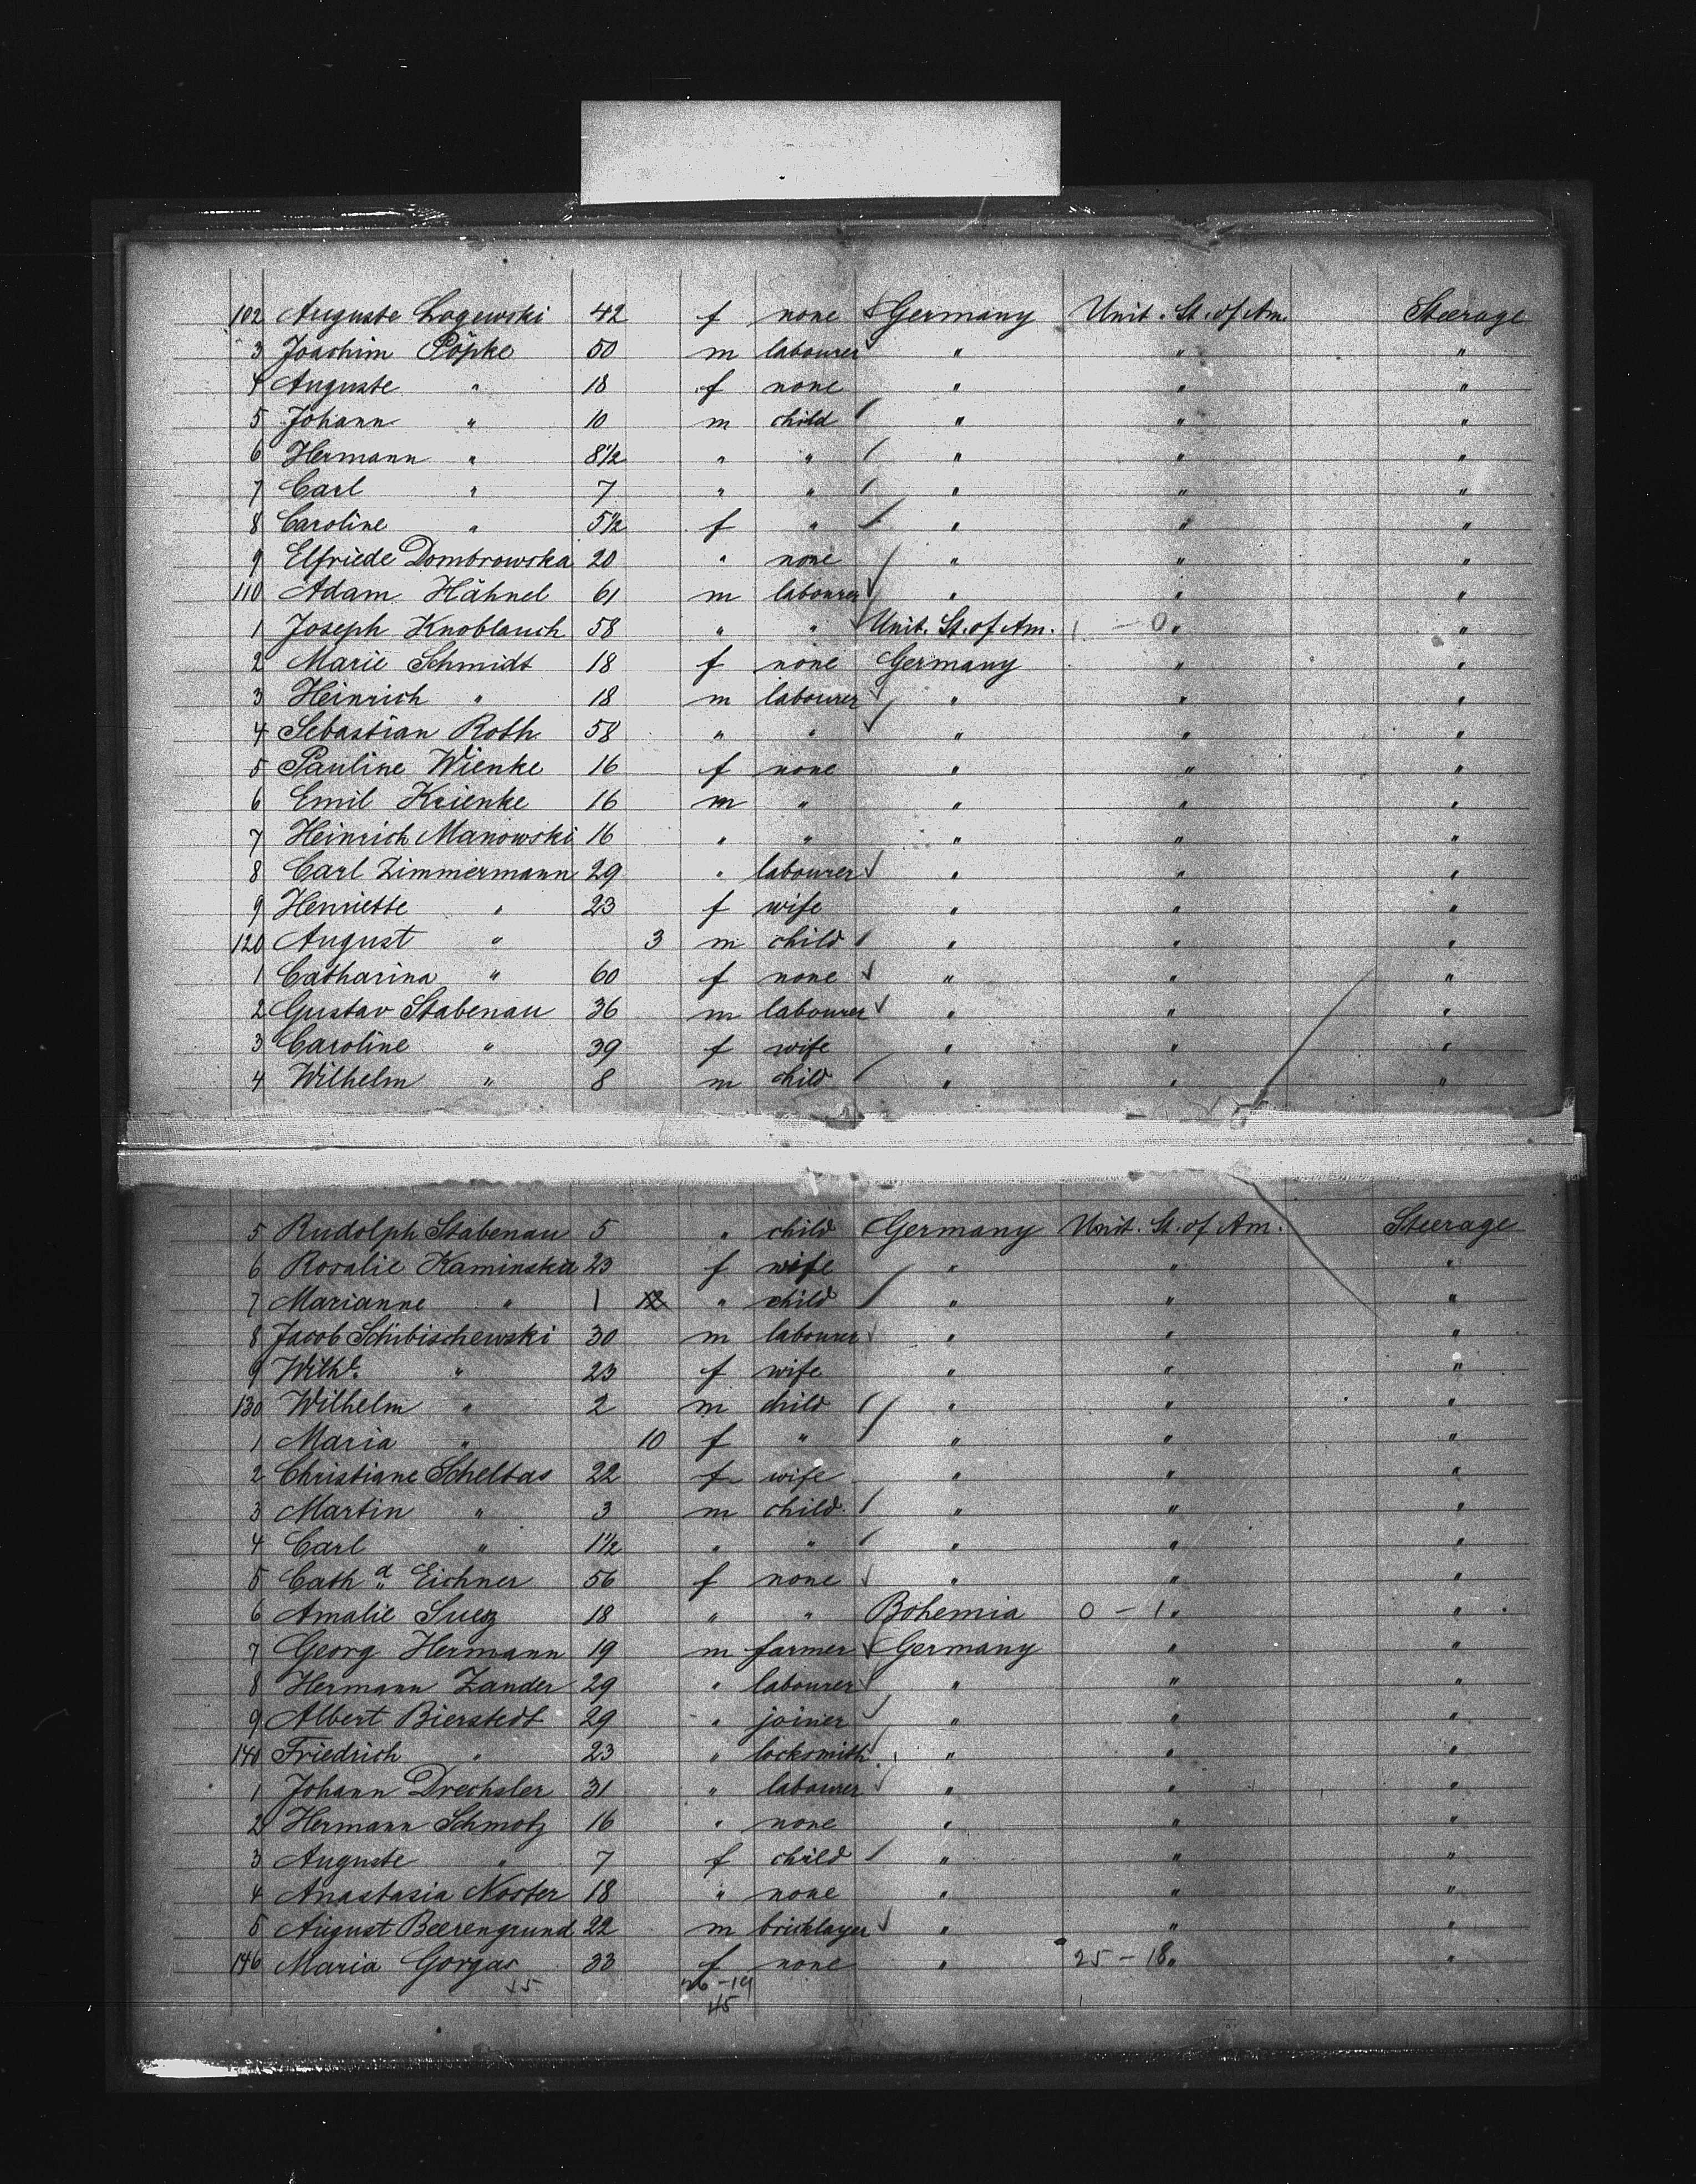 102 Auguste Logewski 42 f none Germany Unit. St. of Am. Steerage
3 Joachim Pöpke 50 m labourer " " "
4 Auguste " 18 f none " " "
5 Johann " 10 m child " " "
6 Hermann " 8 1/2 " " " " "
7 Carl " 7 " " " " "
8 Caroline " 5 1/2 f " " " "
9 Elfriede Dombrowska 20 " none " " "
110 Adam Hähnel 61 m labourer " " "
1 Joseph Knoblauch 58 " " Unit. St. of Am. 1 - 0 " "
2 Marie Schmidt 18 f none Germany " "
3 Heinrich " 18 m labourer " " "
4 Sebastian Roth 58 " " " " "
5 Pauline Wienke 16 f none " " "
6 Emil Krienke 16 m " " " "
7 Heinrich Manowski 16 " " " " "
8 Carl Zimmermann 29 " labourer " " "
9 Henriette " 23 f wife " " "
120 August " 3 m child " " "
1 Catharina " 60 f none " " "
2 Gustav Stabenau 36 m labourer " " "
3 Caroline " 39 f wife " " "
4 Wilhelm " 8 m child " " "
5 Rudolph Stabenau 5 " child Germany Unit. St. of Am. Steerage
6 Rosalie Kaminska 23 f wife " " "
7 Marianne " 1 " child " " "
8 Jacob Schibischewski 30 m labourer " " "
9 Wilh.e " 23 f wife " " "
130 Wilhelm " 2 m child " " "
1 Maria " 10 f " " " "
2 Christiane Scheltas 22 f wife " " "
3 Martin " 3 m child " " "
4 Carl " 1 1/2 " " " " "
5 Cath.a Eichner 56 f none " " "
6 Amalie 18 " " Bohemia 0 - 1 " "
7 Georg Hermann 19 m farmer Germany " "
8 Hermann Zander 29 " labourer " " "
9 Albert Bierstedt 29 " joiner " " "
140 Friedrich " 23 " locksmith " " "
1 Johann Drechsler 31 " labourer " " "
2 Hermann Schmotz 16 " none " " "
3 Auguste " 7 f child " " "
4 Anastasia Noster 18 " none " " "
5 August Beerengrund 22 m bricklayer " " "
146 Maria Gorgas 33 f none " 25 - 18 " "
26 - 19
45